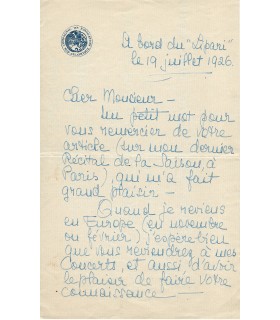 A bord du "Lipari"
le 19 juillet 1926.
Cher Monsieur –
Un petit mot pour
vous remercier de votre
article (sur mon dernier
Récital de la Saison, à
Paris), qui m'a fait
grand plaisir –
Quand je reviens
en Europe (en novembre
ou février) j'espère bien
que vous reviendrez à mes
Concerts, et aussi d'avoir
le plaisir de faire votre
connaissance!